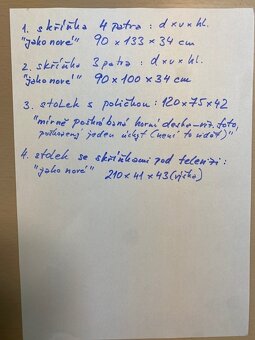 1. skříňka 4 patra : d x v x hl.
"jako nové" 90 x 133 x 34 cm
2. skříňka 3 patra : d x v x hl.
"jako nové" 90 x 100 x 34 cm
3. stolek s poličkou: 120 x 75 x 42
"mírně poškrábaná horní deska - viz. foto,
poškozený jeden úchyt (není to vidět)"
4. stolek se skříňkami pod televizi :
"jako nové" 210 x 41 x 43 (výška)